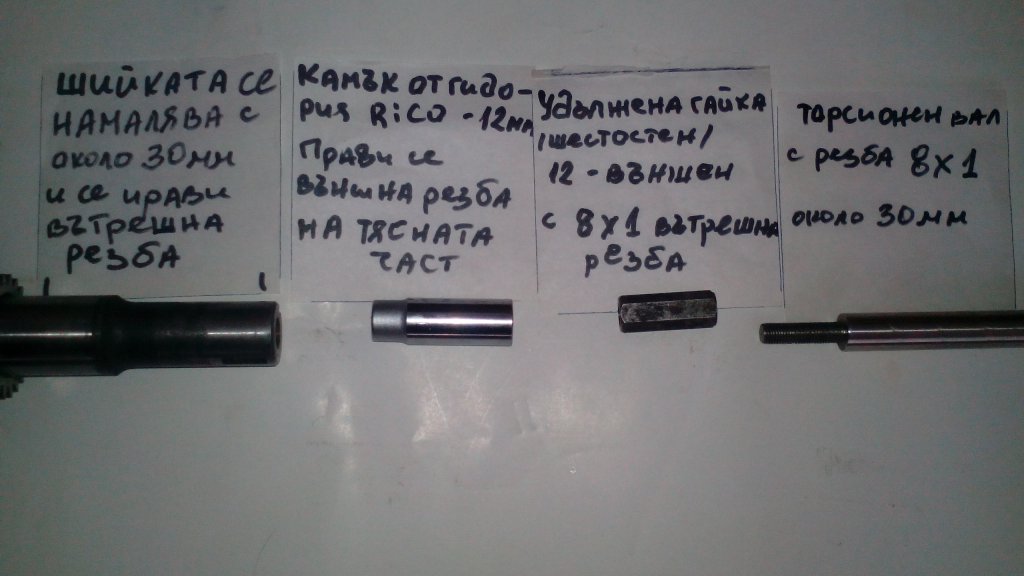 ШИЙКАТА СЕ
НАМАЛЯВА С
около 30мм
и се прави
вътрешна
резба
Камък от гидо-
рия RiCO - 12мм
Прави се
външна резба
на тясната
част
Удължена гайка
/шестостен/
12 - външен
с 8X1 вътрешна
резба
Торсионен вал
с резба 8X1
около 30мм